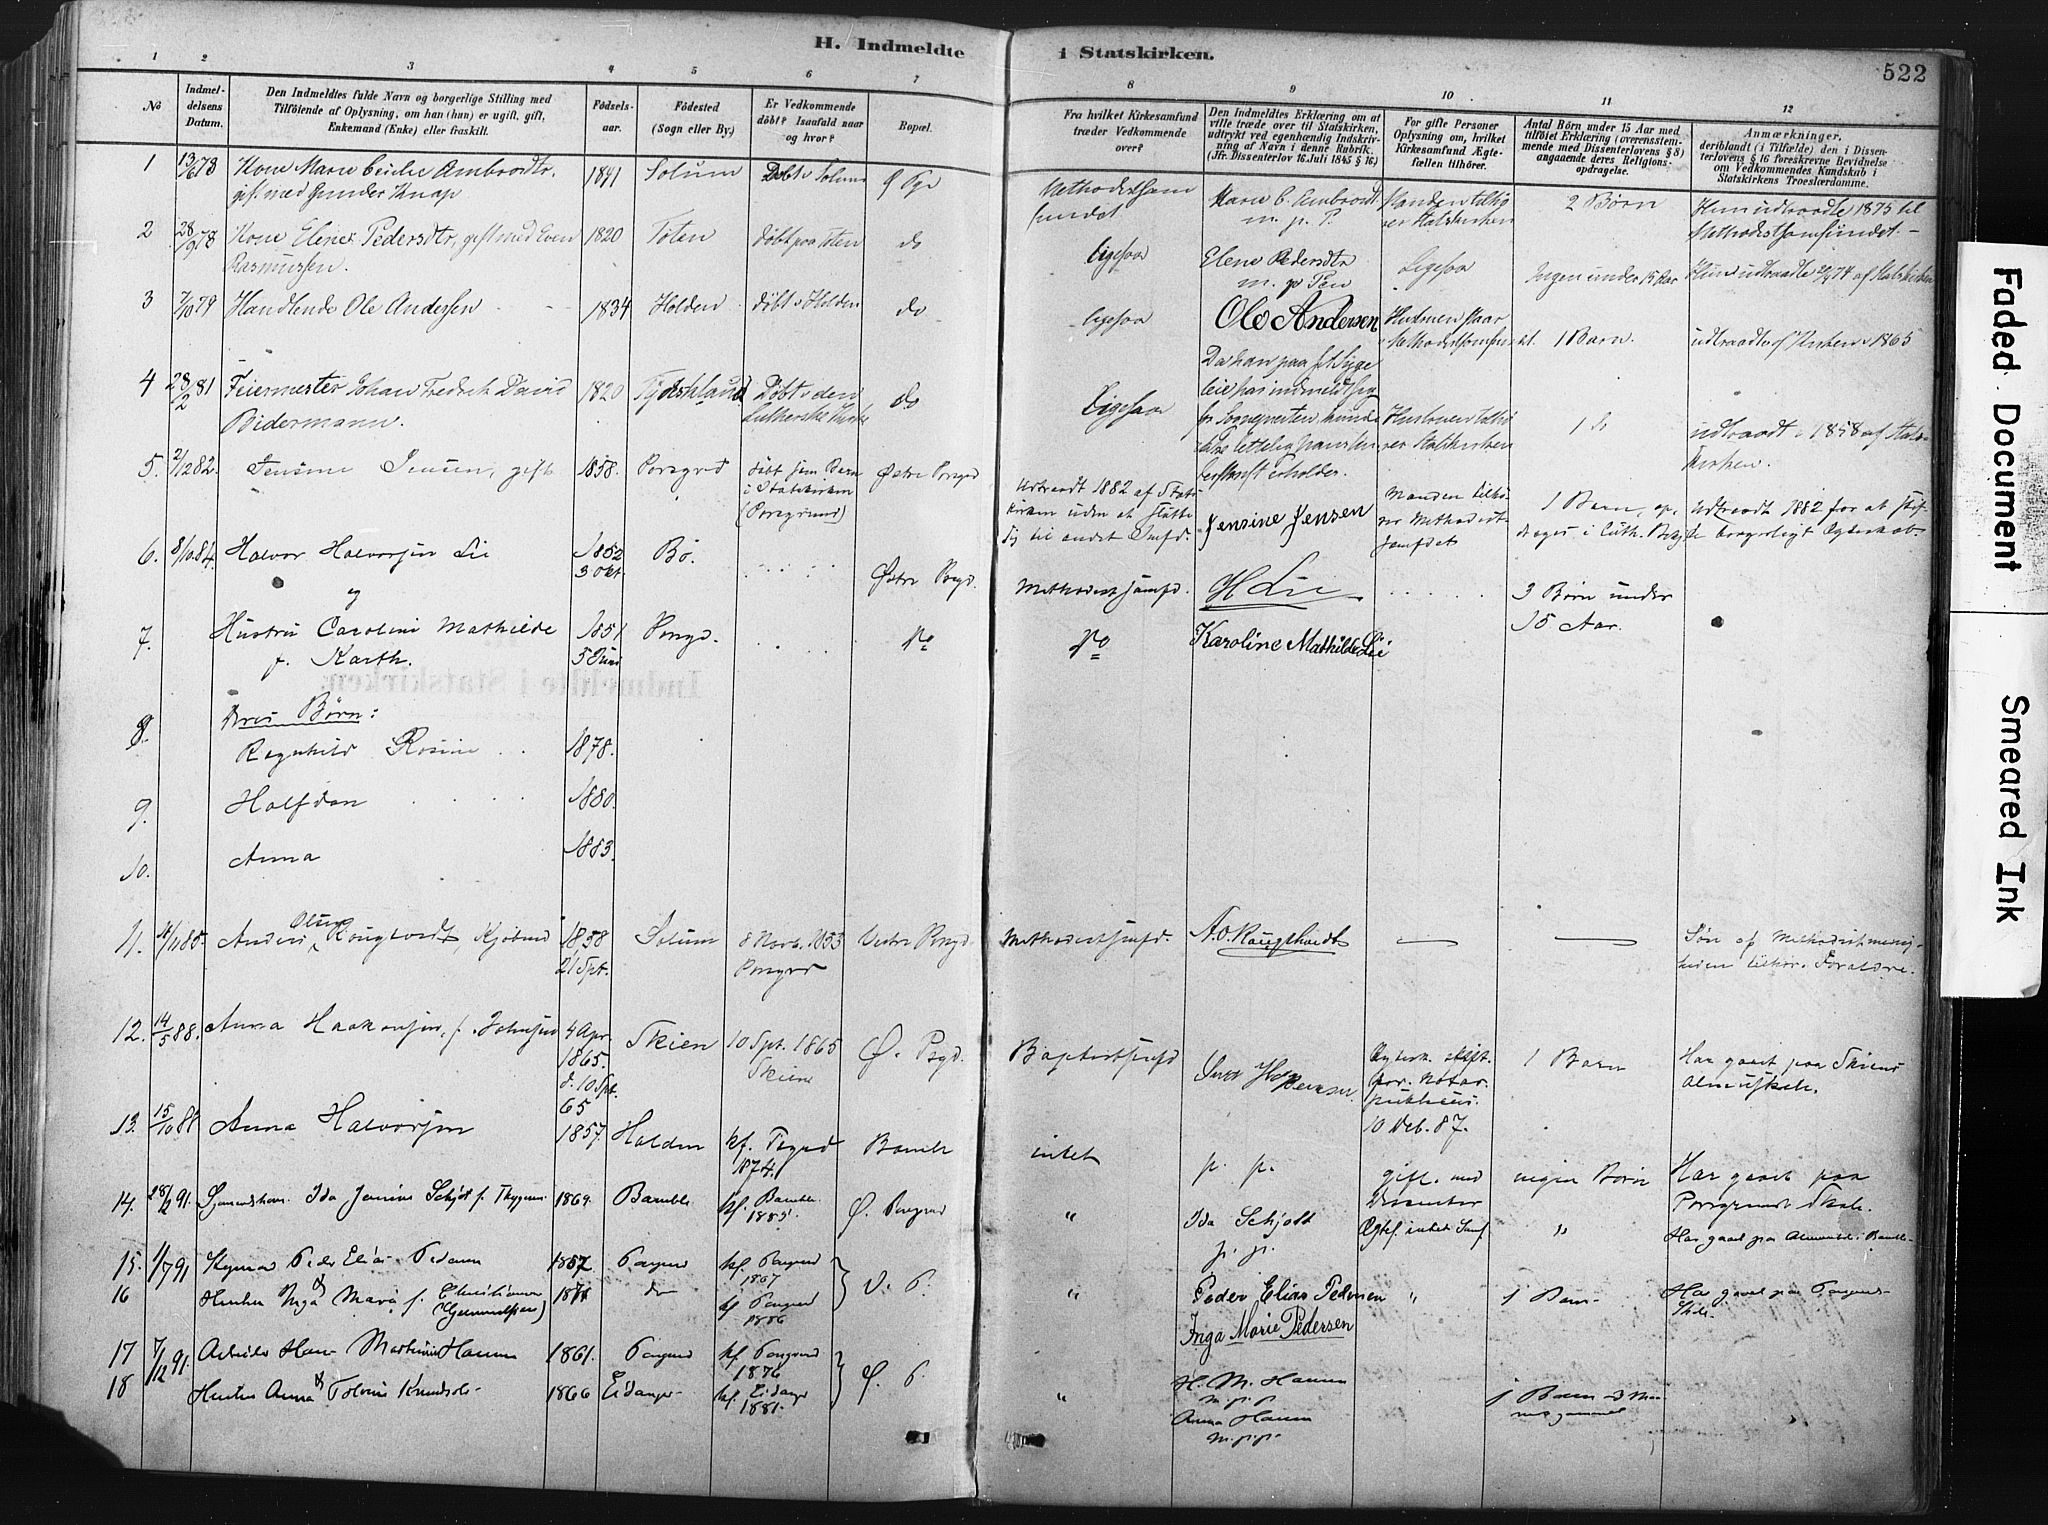 H. Indmeldte i Statskirken.
522
1 2 3 4 5 6 7 8 9 10 11 12
No
Indmeldelsens Datum.
Den Indmeldtes fulde Navn og borgerlige Stilling med
Tilföiende af Oplysning, om han (hun) er ugift, gift,
Enkemand (Enke) eller fraskilt.
Fødselsaar.
Födested
(Sogn eller By.)
Er Vedkommende
döbt? Isaafald naar
og hvor?
Bopæl.
Fra hvilket Kirkesamfund
træder Vedkommende
over?
Den Indmeldtes Erklæring om at
ville træde over til Statskirken,
udtrykt ved egenhændig Indskrivning af Navn i denne Rubrik.
(Jfr. Dissenterlov 16. Juli 1845 § 16)
For gifte Personer
Oplysning om, hvilket
Kirkesamfund Ægtefællen tilhörer.
Antal Börn under 15 Aar med
tilföiet Erklæring (overensstemmende med Dissenterlovens § 8)
angaaende deres Religionsopdragelse.
Anmærkninger,
deriblandt (i Tilfælde) den i Dissenterlovens § 16 foreskrevne Bevidnelse
om Vedkommendes Kundskab i
Statskirkens Troeslærdomme.
1 13/6 78 Kone Marie Cecilie Ambrosdtr. gift med Gunder Knap 1841 Solum Døbt i Solum Methodistsamfundet Marie C. Ambrosdtr m. p. P. Manden tilhører Statskirken 2 Børn Hun udtraadte 1875 til Methodistsamfundet.
2 28/9 78 Kone Elene Pedersdtr, gift med Even Rasmussen. 1820 Toten døbt paa Toten do ligesaa Elene Pedersdtr m. p. Pen Ligesaa Ingen under 15 Aar Hun udtraadte 74 af Statskirken
3 7/10 79 Handlende Ole Andersen 1834 Holden døbt i Holden do ligesaa Ole Andersen Hustruen staar i Methodistsamfundet. 1 Barn. udtraadte af Kirken 1865
4 28/2 81 Feiermester Johan Fredrik David Bidermann. 1820 Tydskland Døbt i den lutherske Kirke do Ligesaa Da han paa sit Sygeleie har indmeldt sig for Sognepresten, kunde ikke lettelig hans Underskrift erholdes. Hustruen tilhører Statskirken 1 do udtraadt i 1858 af Statskirken.
5. 2/12 82. Jensine Jensen, gift 1858. Porsgrd døbt som Barn i Statskirken (Porsgrund) Østre Porsgrd Udtraadt 1882 af Statskirken uden at slutte sig til andet Smfd. Jensine Jensen Manden tilhører Methodistsamfdet 1 Barn, opdrages i luth. Bekj. Udtraadt 1882 for at stifte borgerligt Ægteskab.
6. 8/10 84. Halvor Halvorsen Lie 1852 3 Okt. Bø. Østre Porsgd. Methodistsamfd. H Lie 3 Børn under 15 Aar.
og
7. Hustru Caroline Mathilde f. Karth. 1851 5 Juni Porsgd. Do Do Karoline Mathilde Lie
Deres Børn:
8. Ragnhild Rosine 1878.
9. Halfdan 1880.
10. Anna 1883.
11. 85. Anders Olus Kougtvedt, Kjøbmd 1858 21 Spt. Solum 8 Novb. 1853 Porsgrd Vestre Porsgd. Methodistsamfd. A. O. Søn af Methodistmenigheden tilhør. Forældre.
12. 14/5 88. Anna Haakonsen, f. Johnsen 4 Apr. 1865. d. 10 Spt. 65 Skien 10 Spt. 1865 Skien Ø. Psgd. Baptistsamfd Ægtesk. stift. for Notar. publicus. 10 Deb. 87. 1 Barn Har gaaet paa Skiens Almueskole.
13. 15/10 88 Anna Halvorsen 1857. Holden kf. Psgrd 1874. Bamle intet p. p. gift med Dissenter ingen Børn Har gaaet paa Porsgrunds Skole.
14. 28/2 91. Sømandskone Ida Jensine Schjøt f. Thygesen 1869. Bamble kf. Bamble 1885. Ø. Porsgrd " Ida Schjøtt p. p. Ægtef. intet Samf. " Har gaaet paa Almueskole i Bamble.
15. 1/7 91 Peder Elias Pedersen 1857 Porsgrd kf. Porsgrund 1867 V. P. " Peder Elias Pedersen " 1 Barn Har gaaet paa Porsgrunds Skole.
16 & Hustru Inga Marie f. Christiansen 1871 do kf Porsgrd 1886 Inga Marie Pedersen
17 7/12 91. Arbeider Hans Martinius Hansen 1861. Porsgrund kf. Porsgrund 1876 Ø. P. " H. M. Hansen m. p. p 1 Barn 3 Maaneder gammel
18 & Hustru Anna Tolvine Knudsdr. 1866 Eidanger kf. Eidanger 1881. Anna Hansen m. p. p.
Faded Document
Smeared Ink